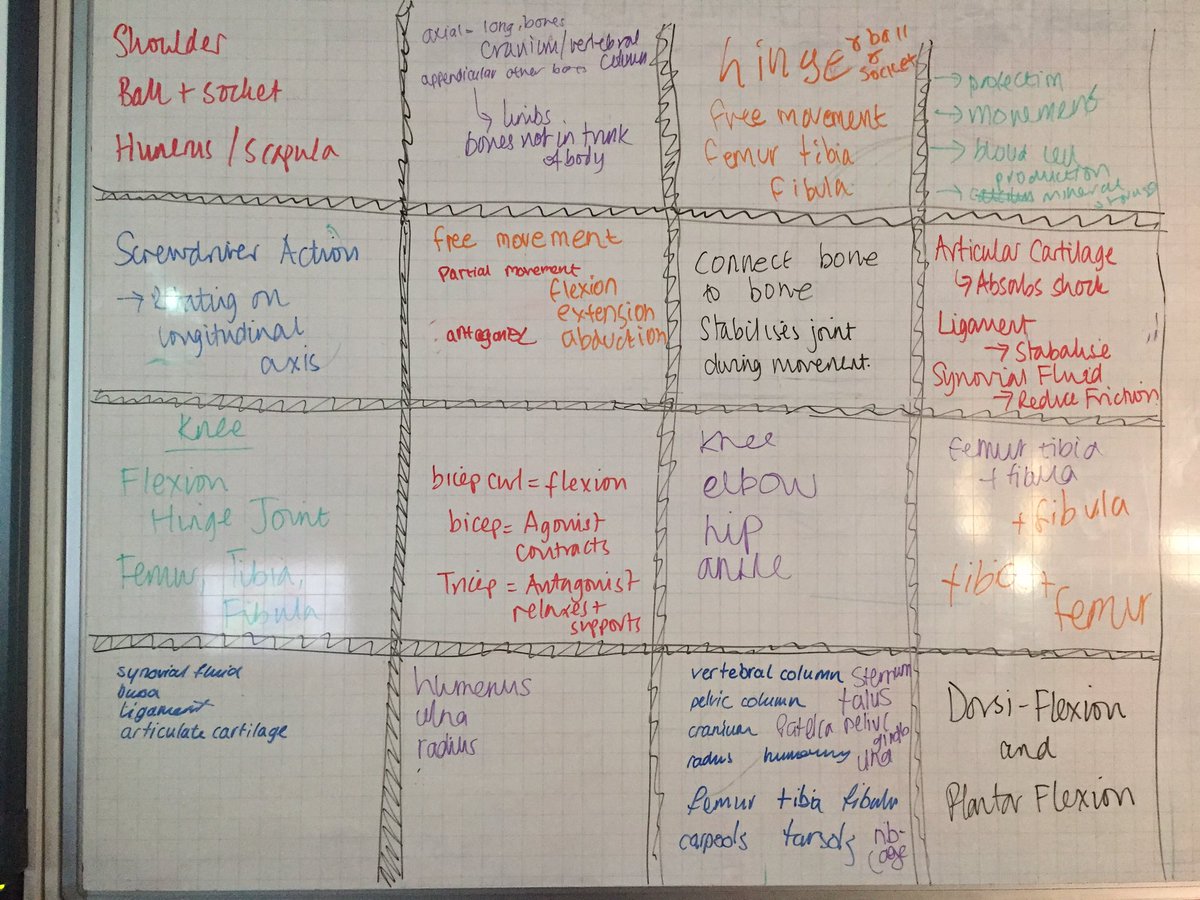 Shoulder
Ball + socket
Humerus / Scapula
axial = long, bones
cranium/vertebral
column
appendicular other bones
↳ limbs.
bones not in trunk
of body
hinge r ball
or
socket
free movement
femur tibia
fibula
→ protection
→ movement
→ blood cell
production
→ mineral
storage
Screwdriver Action
→ Rotating on
longitudinal
axis
free movement
Partial movement
flexion
extension
antagonist abduction
Connect bone
to bone
Stabilises joint
during movement.
Articular Cartilage
↳ Absorbs shock
Ligament
→ Stabalise
Synovial Fluid
→ Reduce Friction
Knee
Flexion
Hinge Joint
Femur, Tibia,
Fibula
bicep curl = flexion
bicep = Agonist
contracts
Tricep = Antagonist
relaxes +
supports
Knee
elbow
hip
ankle
femur tibia
+ fibula
+ fibula
tibia +
femur
synovial fluid
bursa
ligament
articulate cartilage
humerus
ulna
radius
vertebral column sternum
pelvic column talus
cranium Patella pelvic
girdle
radus ulna
femur tibia fibula
carpools tarsols rib-
cage
Dorsi-Flexion
and
Plantar Flexion